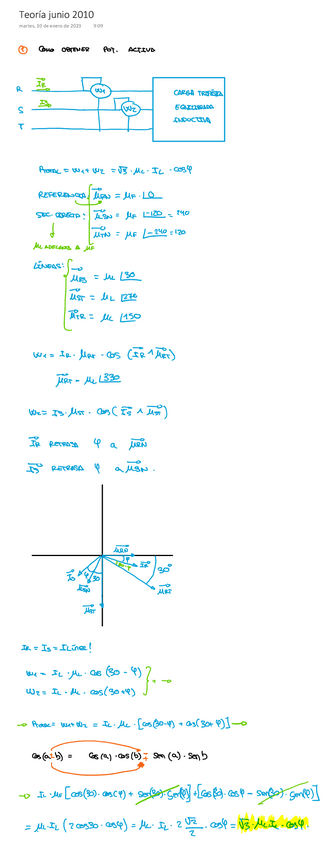 Teoría junio 2010
martes, 10 de enero de 2023 9:09
① COMO OBTENER POT. ACTIVA
R
IR
W1
S
IS
W2
T
CARGA TRIFÁSICA
EQUILIBRADA
INDUCTIVA
PTOTAL = W1 + W2 = √3 · UL · IL · cosφ
REFERENCIA: URN = UF ⌊0
SEC. DIRECTA: USN = UF ⌊-120 = 240
UTN = UF ⌊-240 = 120
UL ADELANTA A UF
LÍNEAS:
URS = UL ⌊30
UST = UL ⌊270
UTR = UL ⌊150
W1 = IR · URT · cos (IR ^ URT)
URT = UL ⌊330
W2 = IS · UST · cos (IS ^ UST)
IR RETRASA φ a URN
IS RETRASA φ a USN.
URN
φ
IR
30°
URT
IS
φ
30
USN
UST
IR = IS = ILínea!
W1 = IL · UL · cos (30 - φ)
W2 = IL · UL · cos (30 + φ)
→ PTOTAL = W1 + W2 = IL · UL · [cos(30-φ) + cos(30+φ)] →
cos(a±b) = cos(a) · cos(b) ∓ sen(a) · sen b
→ IL · UL [cos(30) · cosφ + sen(30) · sen(φ)] + [cos(30) · cosφ - sen(30) · sen(φ)]
= UL · IL (2 cos30 · cosφ) = UL · IL · 2 √3/2 · cosφ = √3 · UL · IL · cosφ.